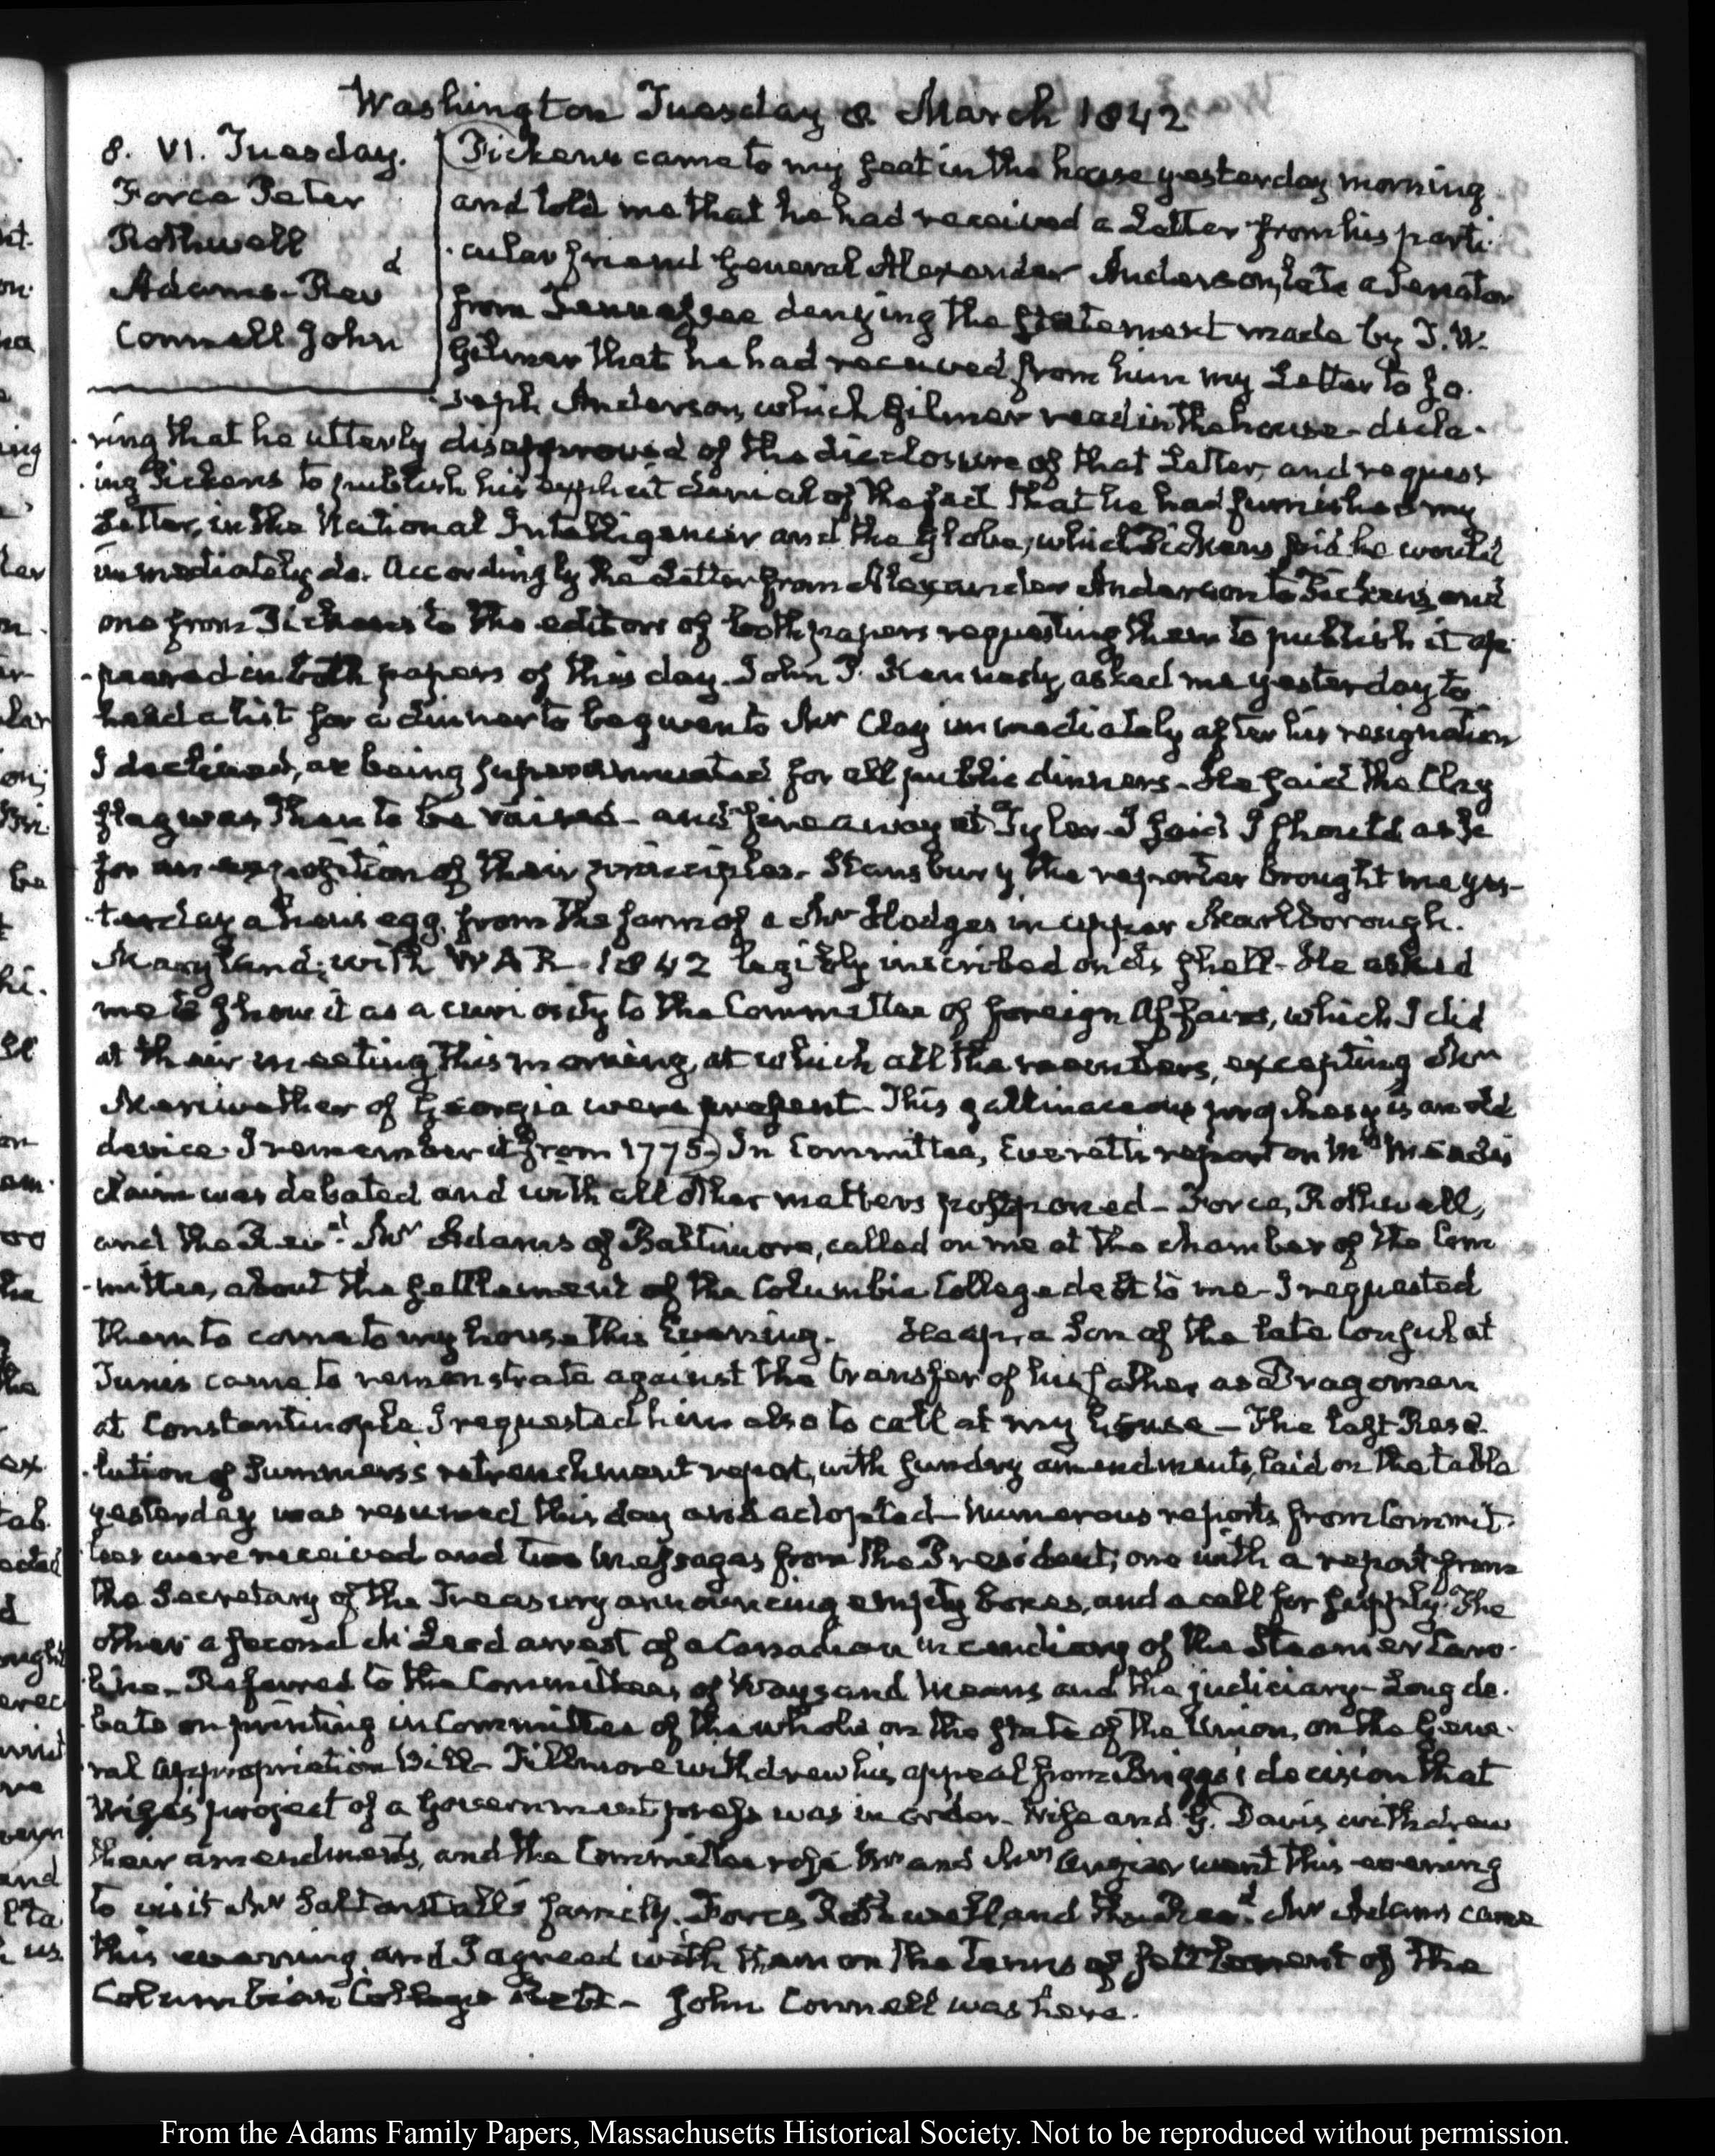 Washington Tuesday 8. March 1842
8. VI. Tuesday.
Force Peter
Rothwell
Adams-Revd
Connell John
Pickens came to my seat in the house yesterday morning
and told me that he had received a Letter from his parti-
-cular friend General Alexander Anderson, late a Senator
from Tennessee denying the statement made by T. W.
Gilmer that he had received from him my Letter to Jo-
-seph Anderson, which Gilmer read in the house- decla-
-ring that he utterly disapproved of the disclosure of that Letter, and request
-ing Pickens to publish his explicit denial of the fact that he had furnished my
Letter, in the National Intelligencer and the Globe, which Pickens said he would
immediately do. Accordingly the Letter from Alexander Anderson to Pickens, and
one from Pickens to the editors of both papers requesting them to publish it ap-
-peared in both papers of this day. John P. Kennedy, asked me yesterday to
head a list for a dinner to be given to Mr Clay immediately after his resignation
I declined, as being superannuated for all public dinners- He said the Clay
flag was then to be raised- and fire away at Tyler- I said I should ask
for an exposition of their principles. Stansbury the reporter brought me yes-
-terday a hen's egg, from the farm of a Mr Hodges in upper Marlborough.
Maryland; with WAR 1842 legibly inscribed on its shell- He asked
me to show it as a curiosity to the Committee of foreign Affairs, which I did
at their meeting this morning, at which all the members, excepting Mr
Meriwether of Georgia were present- This gallinaceous prophesy is an old
device. I remember it from 1775. In Committee, Everett's report on Mrs Meade's
claim was debated and with all other matters postponed- Force, Rothwell,
and the Revd. Mr Adams of Baltimore, called on me at the chamber of the Com
-mittee, about the settlement of the Columbia College debt to me- I requested
them to come to my house this Evening. Heap, a Son of the late Consul at
Tunis came to remonstrate against the transfer of his father as Dragoman
at Constantinople I requested him also to call at my house- The last Reso-
-lution of Summers's retrenchment report, with sundry amendments, laid on the table
yesterday was resumed this day and adopted- Numerous reports from Commit-
-tees were received and two Messages from the President; one with a report from
the Secretary of the Treasury announcing empty boxes, and a call for supply. The
other a second arrest of a Canadian incendiary of the Steamer Caro-
-line- Referred to the Committees of Ways and Means and the judiciary- Long de-
-bate on printing in Committee of the whole on the state of the Union, on the Gene-
-ral Appropriation Bill- Fillmore withdrew his appeal from Briggs's decision that
Wise's project of a Government press was in order- Wise and G. Davis withdrew
their amendments, and the Committee rose Mr and Mrs Angier went this evening
to visit Mr Saltonstall's family. Force, Rothwell, and the Revd. Mr Adams came
this evening, and I agreed with them on the terms of settlement of the
Columbian College Debt- John Connell was here.
From the Adams Family Papers, Massachusetts Historical Society. Not to be reproduced without permission.